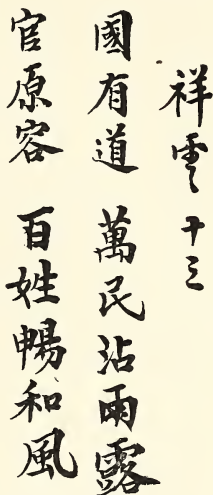 祥雲 十三
國有道 萬民沾雨露
官原容 百姓暢和風